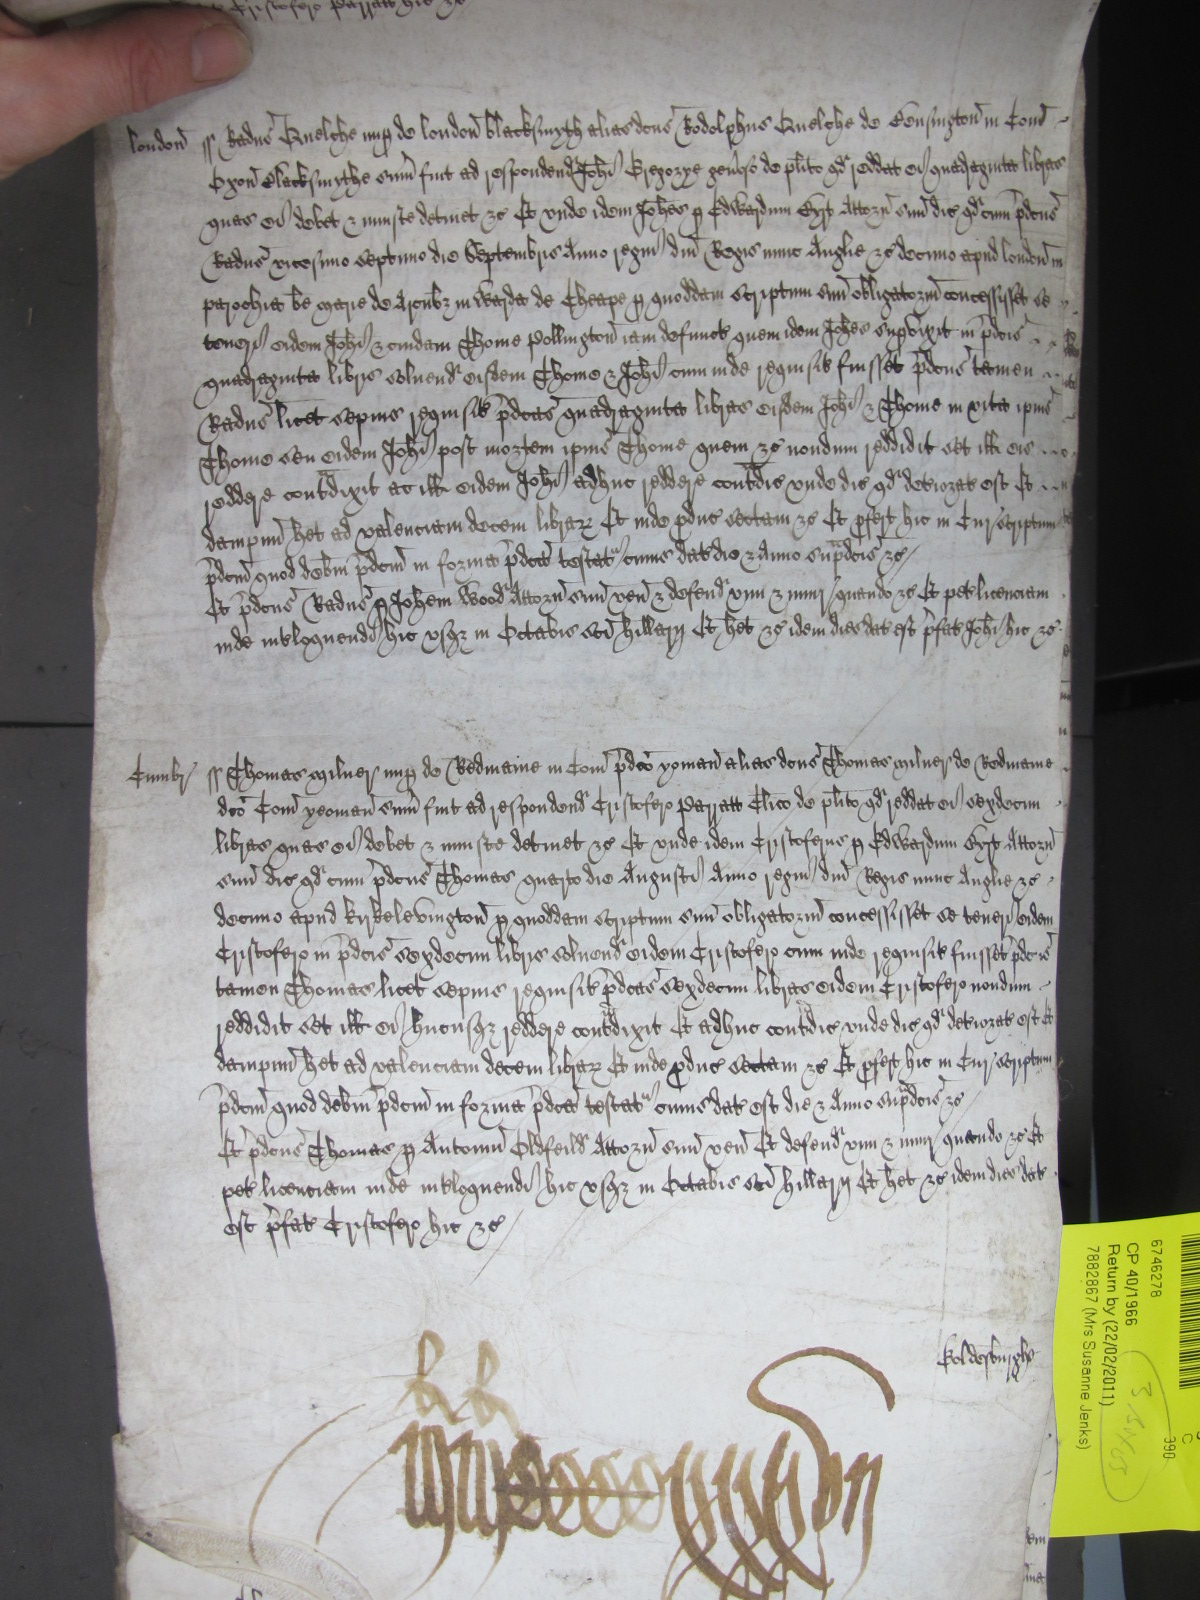 london ss Radus Quelche nup de london blacksmyth alias dcus Rodolphus Quelche de Bensington in Com
Oxon Blacksmythe sum fuit ad respondend Johi Gregorye genoso de plito qd reddat ei quadraginta libras
quas ei debet & iniuste detinet &c Et unde idem Johes p Edwardum Attorn suu dic qd cum pdcus
Radus vicesimo septimo die Septembris Anno regni dni Regis nunc Anglie &c decimo apud london in
parochia be marie de Arcubz in warda de Cheape p quoddam scriptum suu obligatoriu concessisset se
teneri eidem Johi & cuidam Thome Pollington iam defunct quem idem Johes supvixit in pdcis
quadraginta libris solvend eisdem Thome & Johi cum inde requisit fuisset pdcus tamen
Radus licet sepius requisit pdcas quadraginta libras eisdem Johi & Thome in vita ipius
Thome seu eidem Johi post mortem ipius Thome quem &c nondum reddidit set ill eis
reddere contradixit ac ill eidem Johi adhuc reddere contradic unde dic qd deteriorat est Et
dampnu het ad valenciam decem librar Et inde pduc sectam &c Et pfert hic in Cur scriptum
pdcm quod debm pdcm in forma pdca testat cuius dat die & Anno supdcis &c
Et pdcus Radus p Johem Wood Attorn suu ven & defend vim & iniur quando &c Et pet licenciam
inde interloquendi hic usqz in Octabis sci hillarij Et het &c idem dies dat est pfat Johi hic &c
Cumbr ss Thomas Milner nup de Redmaine in Com pdco yoman alias dcus Thomas Milner de Redmaine
dco Com yeoman sum fuit ad respondend Cristofero Parratt Clico de plito qd reddat ei sexdecim
libras quas ei debet & iniuste detinet &c Et unde idem Cristoferus p Edwardum Attorn
suu dic qd cum pdcus Thomas quarto die Augusti Anno regni dni Regis nunc Anglie &c
decimo apud kirkelevington p quoddam scriptum suu obligatoriu concessisset se teneri eidem
Cristofero in pdcis sexdecim libris solvend eidem Cristofero cum inde requisit fuisset pdcus
tamen Thomas licet sepius requisit pdcas sexdecim libras eidem Cristofero nondum
reddidit set ill ei hucusqz reddere contradixit Et adhuc contradic unde dic qd deteriorat est Et
dampnu het ad valenciam decem librar Et inde pduc sectam &c Et pfert hic in Cur scriptum
pdcm quod debm pdcm in forma pdca testat cuius dat est die & Anno supdcis &c
Et pdcus Thomas p Antoniu Oldfeild Attorn suu ven Et defend vim & iniur quando &c Et
pet licenciam inde interloquendi hic usqz in Octabis sci hillarij Et het &c idem dies dat
est pfat Cristofero hic &c
Goldesburghe
6746278
CP 40/1966
Return by (22/02/2011)
7882867 (Mrs Susanne Jenks)
390
C